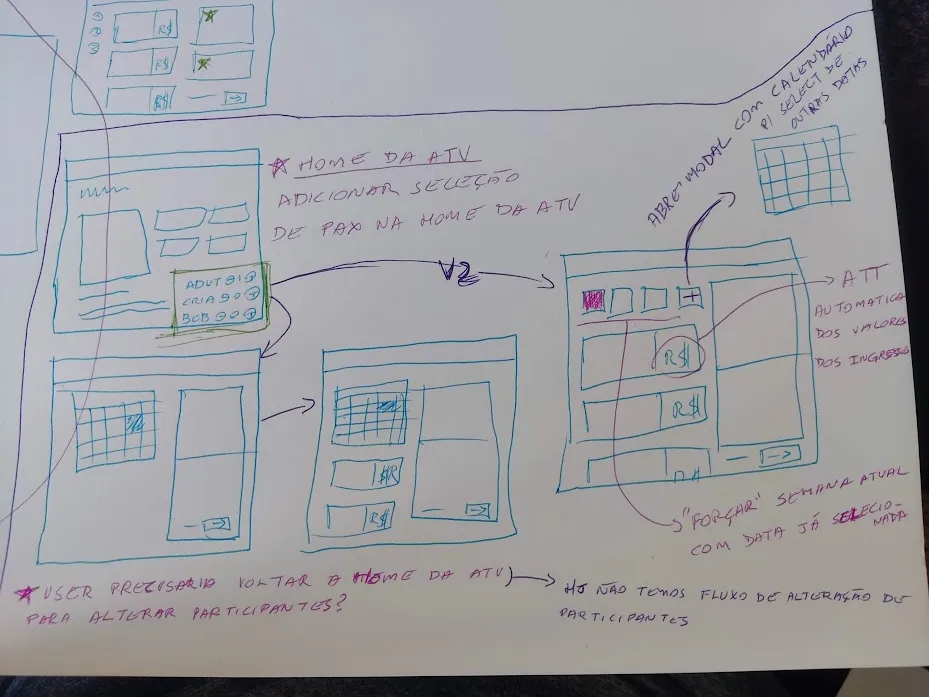 R$
R$
R$
ABRE MODAL COM CALENDÁRIO
P/ SELECT DE
OUTRAS DATAS
* HOME DA ATV
ADICIONAR SELEÇÃO
DE PAX NA HOME DA ATV
ADUT ⊖1⊕
CRIA ⊖0⊕
BEB ⊖0⊕
V2
+
R$
R$
ATT
AUTOMATICA
DOS VALORES
DOS INGRESSOS
R$
"FORÇAR" SEMANA ATUAL
COM DATA JÁ SELECIO-
NADA
* USER PRECISARIA VOLTAR A HOME DA ATV
PARA ALTERAR PARTICIPANTES?
HJ NÃO TEMOS FLUXO DE ALTERAÇÃO DE
PARTICIPANTES